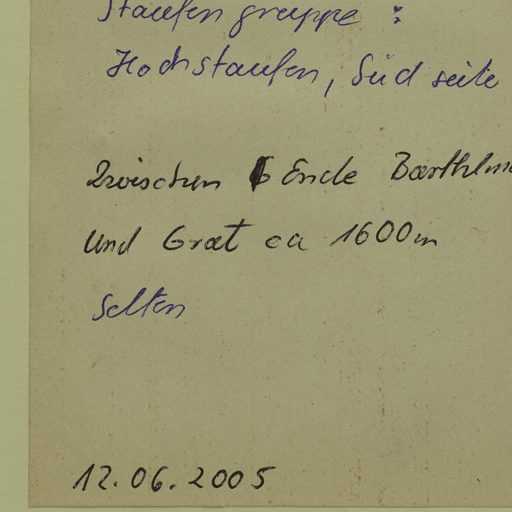 Staufengruppe :
Hochstaufen, Südseite
Zwischen Ende Barthlm
und Grat ca 1600m
Selten
12.06.2005